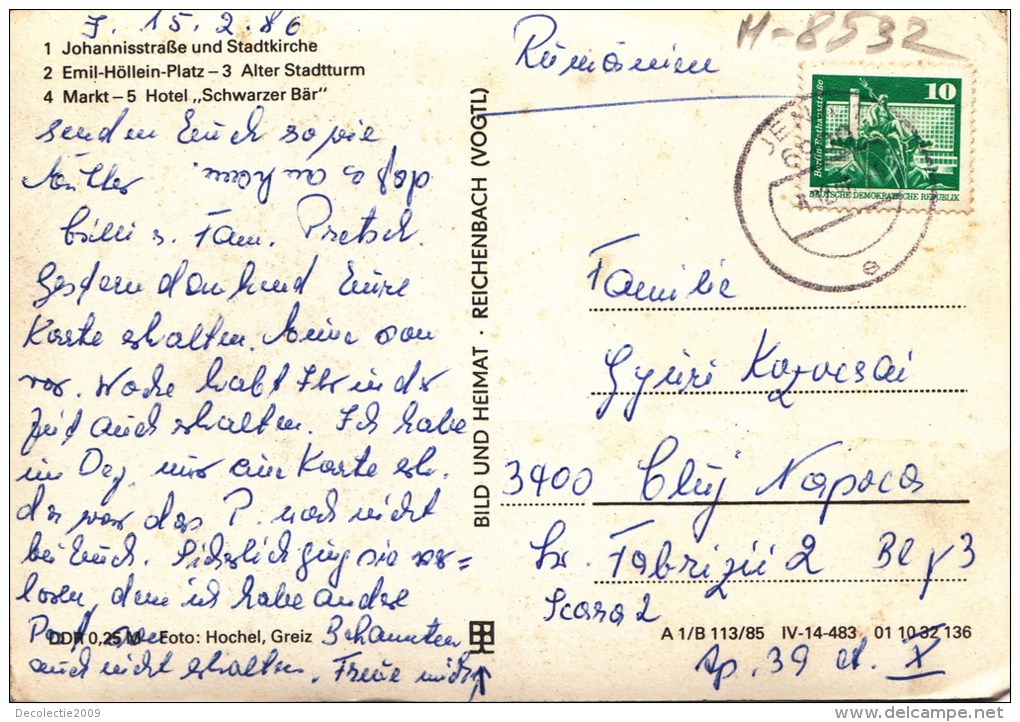 J. 15.2.86
1 Johannisstraße und Stadtkirche
2 Emil-Höllein-Platz – 3 Alter Stadtturm
4 Markt – 5 Hotel „Schwarzer Bär"
senden Euch sowie
Mutter
Billi u. Fam. Pretsch.
Gestern dankend Eure
Karte erhalten. Meine von
vor. Woche habt Ihr in der
Zeit auch erhalten. Ich habe
im Dez. nur ein Karte erh.
da war das P. noch nicht
bei Euch. Sicherlich ging sie ver=
loren, denn ich habe andre
Post von Bekannten
auch nicht erhalten. Freue mich,
daß es an kam
DDR 0,25 M Foto: Hochel, Greiz
BILD UND HEIMAT · REICHENBACH (VOGTL)
M-8532
Rumänien
10
Berlin-Rathausstraße
DEUTSCHE DEMOKRATISCHE REPUBLIK
JENA
e
Familie
Gyuri
3400 Cluj Napoca
Str. Fabricii 2 Bl y3
Scara 2
Ap. 39 et. X
A 1/B 113/85 IV-14-483 01 10 32 136
Decolectie2009